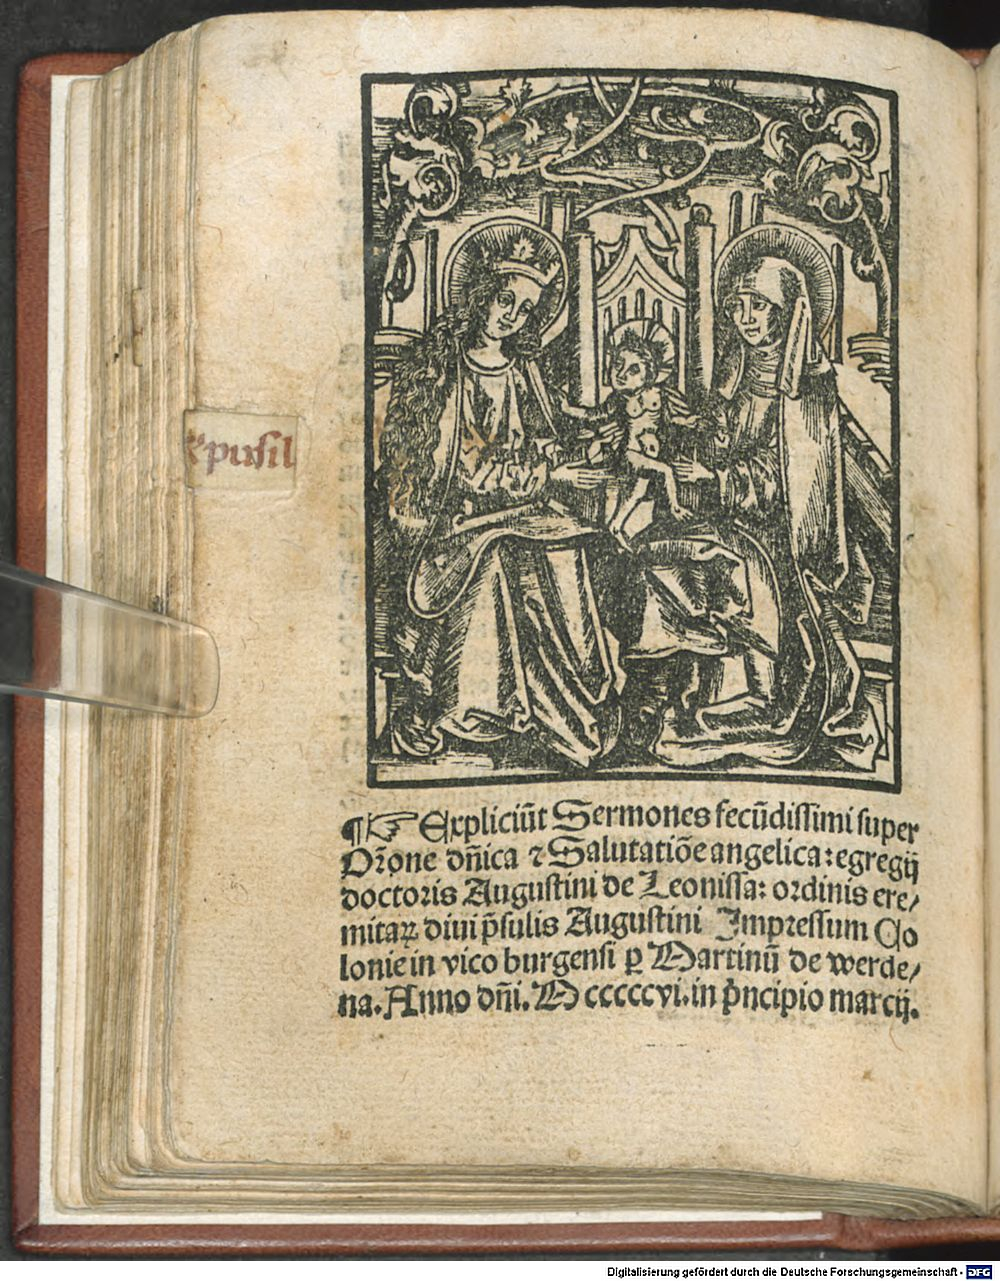 pusil
¶☞ Expliciūt Sermones fecūdissimi super
Or̄one dn̄ica ⁊ Salutatiōe angelica: egregij
doctoris Augustini de Leonissa: ordinis ere/
mitaꝝ diui p̄sulis Augustini Impressum Co
lonie in vico burgensi ꝑ Martinū de werde/
na. Anno dn̄i. M cccccvi. in p̄ncipio marcij.
Digitalisierung gefördert durch die Deutsche Forschungsgemeinschaft - DFG